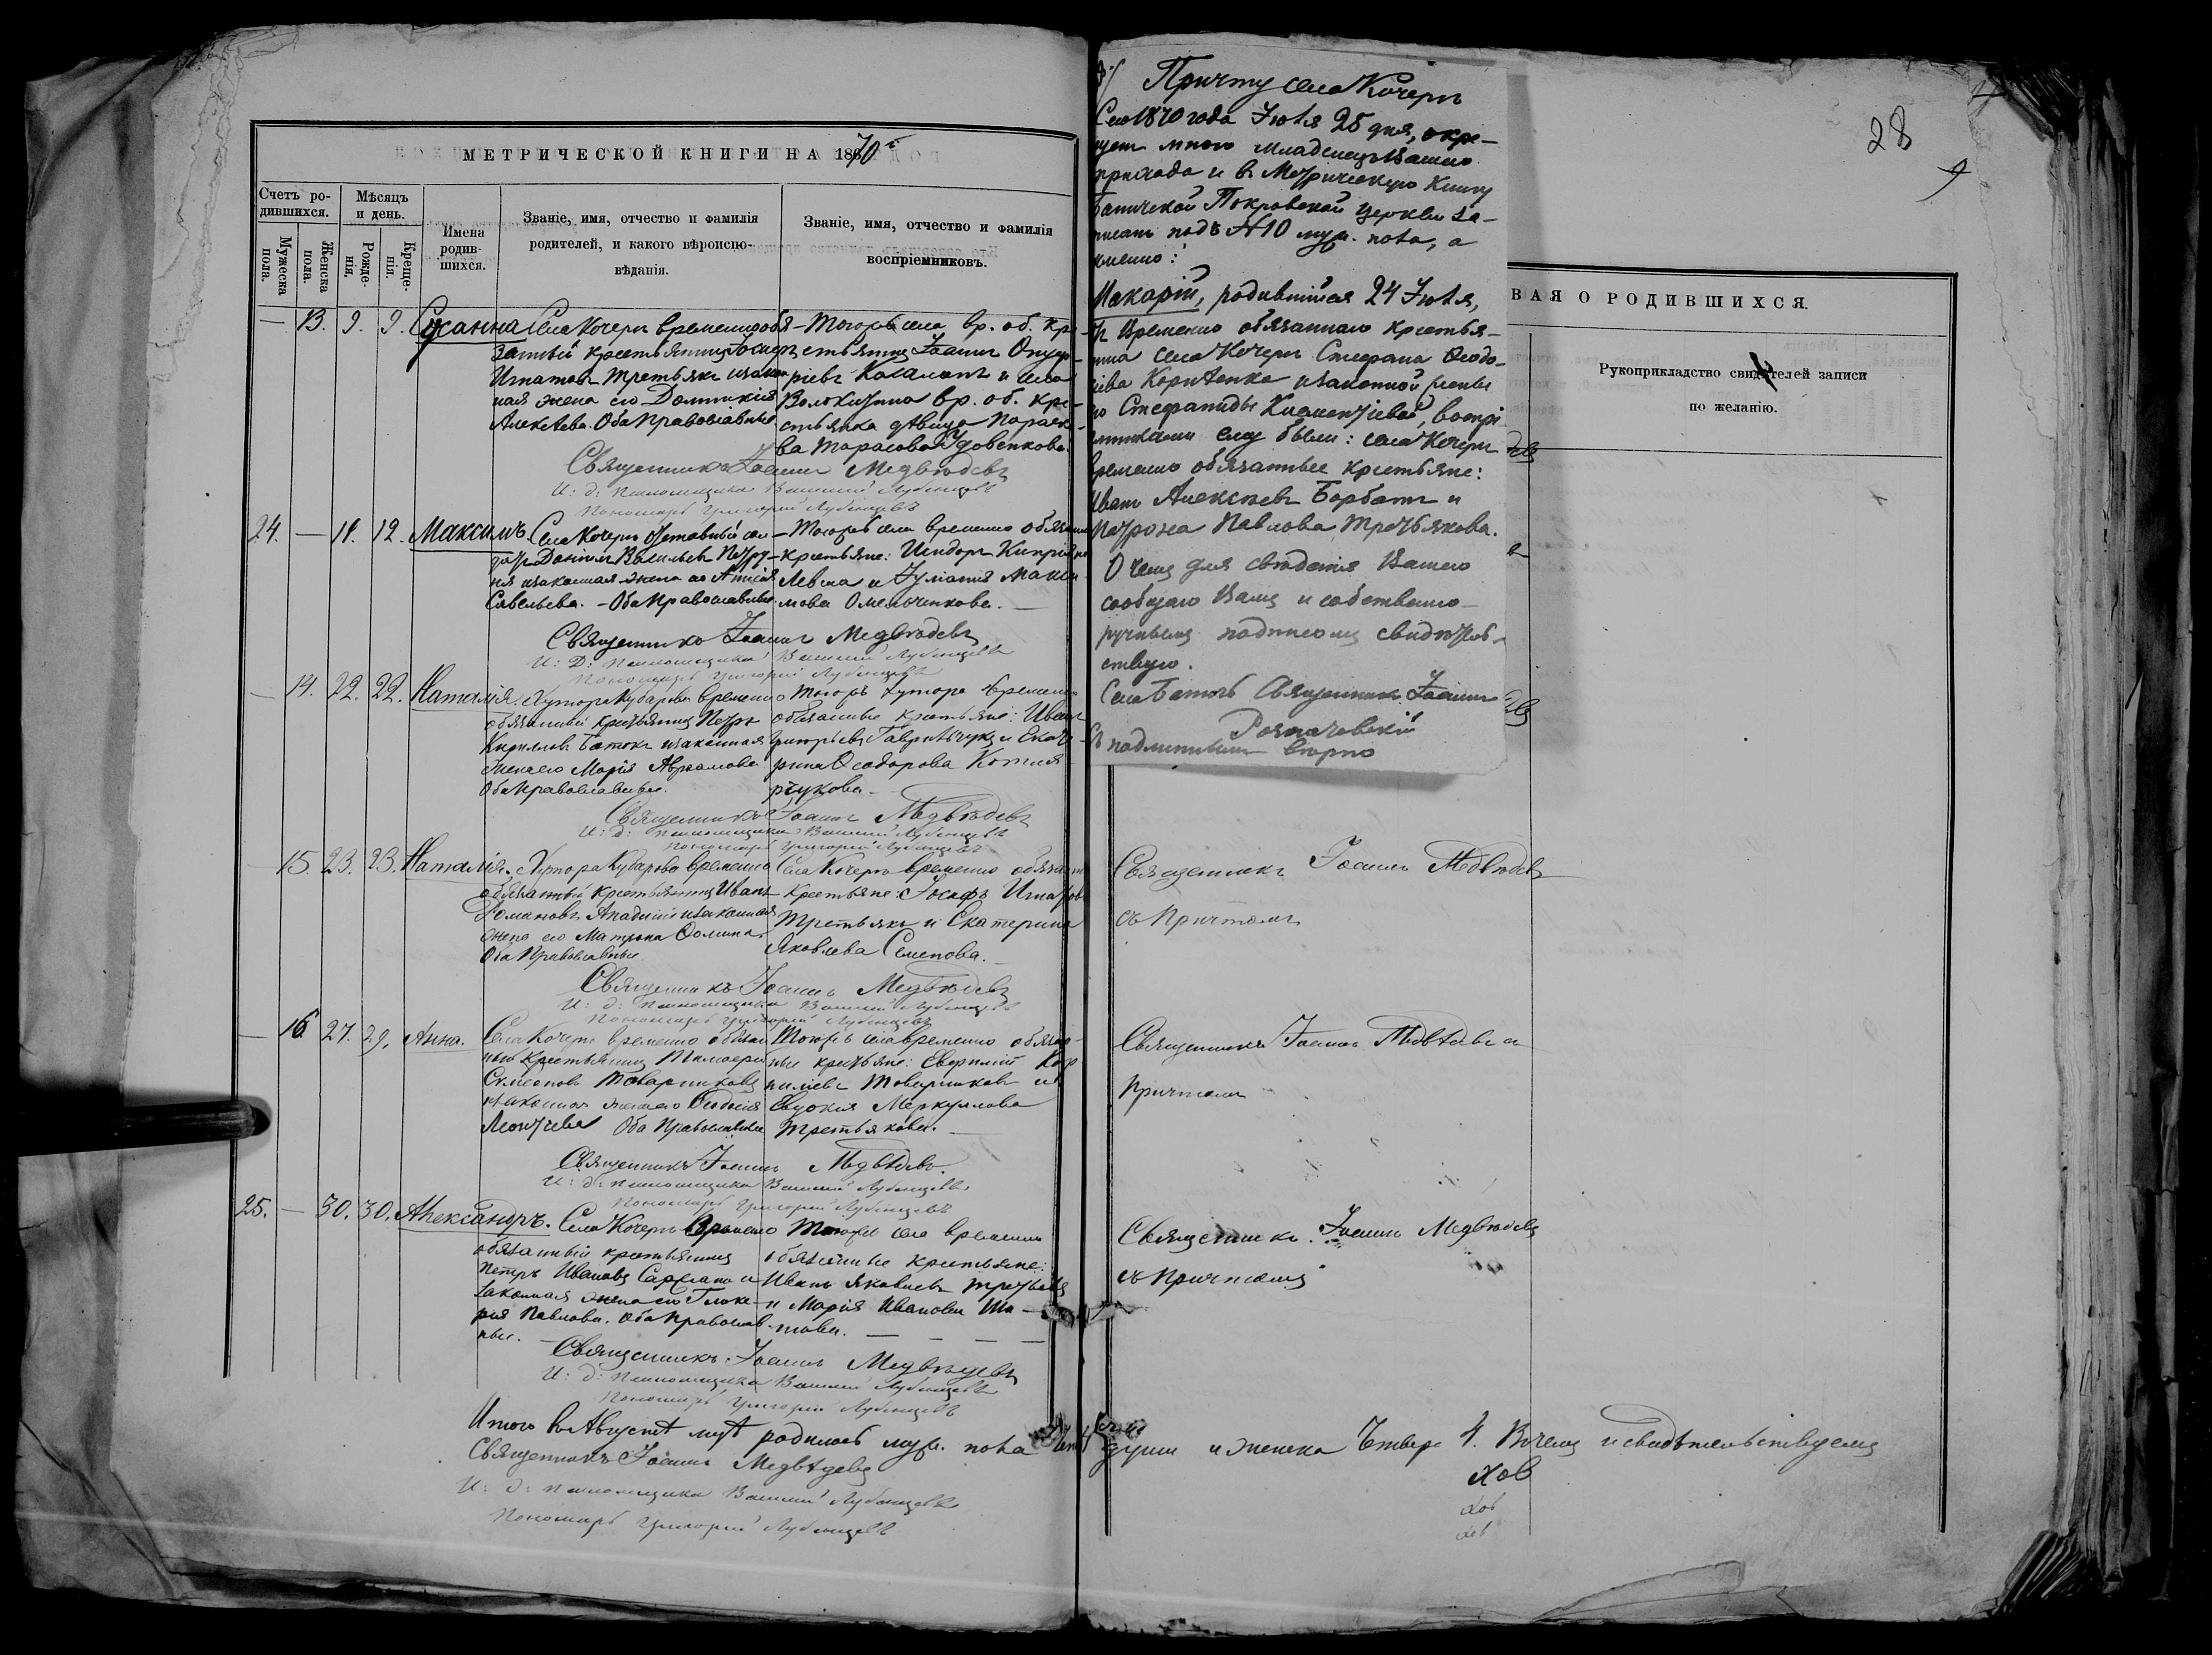 МЕТРИЧЕСКОЙ КНИГИ НА 1870
Счетъ ро-
дившихся.
Мужеска
пола.
Женска
пола.
Мѣсяцъ
и день.
Рожде-
нія.
Креще-
нія.
Имена
родив-
шихся.
Званіе, имя, отчество и фамилія
родителей, и какого вѣроиспо-
вѣданія.
Званіе, имя, отчество и фамилія
воспріемниковъ.
— 13. 9. 9. Сусанна
Села Кочеръ временно обя-
занный крестьянинъ
Игнатовъ Третьякъ и закон
ная жена его Домникія
Алексѣева. Оба православные
Тогожъ села вр. об. кре-
стьянинъ Іоаннъ
и села
вр. об. кре-
стьянка дѣвица Параске-
ва Тарасова Удовенкова.
Священникъ Іоаннъ Медвѣдевъ
И: д: псаломщика Василій Лубенцевъ
Пономарь Григорій Лубенцевъ
24. — 11. 12. Максимъ
Села Кочеръ отставный сол-
датъ Даніилъ Васильевъ Петру-
ня и законная жена его
Савельева. – Оба православные.
Тогожъ села временно обязан
крестьяне: Исидоръ
и Іуліанія Макси-
мова Омельченкова. —
Священникъ Іоаннъ Медвѣдевъ
И: Д: псаломщика Василій Лубенцевъ
Пономарь Григорій Лубенцевъ
— 14. 22. 22. Наталія.
Хутора Кударева временно
обязанный крестьянинъ Петръ
Кирилловъ и законная
жена его Марія Авраамова
Оба православные.
Тогожъ хутора временно
обязанные крестьяне: Иванъ
Григорьевъ Гаврильчукъ и Екате-
рина Ѳеодорова
Священникъ Іоаннъ Медвѣдевъ
И: д: псаломщика Василій Лубенцевъ
Пономарь Григорій Лубенцевъ
15. 23. 23. Наталія.
Хутора Кударева временно
обязанный крестьянинъ Иванъ
Романовъ и законная
жена его Матрона Ѳомина.
Оба православные
Села Кочеръ временно обязан
крестьяне: Іосифъ Игнатовъ
Третьякъ и Екатерина
Яковлева Семенова.
Священникъ Іоаннъ Медвѣдевъ
И: д: псаломщика Василій Лубенцевъ
Пономарь Григорій Лубенцевъ
— 16. 27. 29. Анна.
Села Кочеръ временно обязан
ный крестьянинъ Тимофей
Симеоновъ
и законная жена его Ѳеодосія
Леонтіева Оба православные
Тогожъ села временно обязан-
ные крестьяне: Евфимій Кор-
ниліевъ и
Евдокія Меркулова
Третьякова. —
Священникъ Іоаннъ Медвѣдевъ.
И: д: псаломщика Василій Лубенцевъ
Пономарь Григорій Лубенцевъ
25. — 30. 30. Александръ.
Села Кочеръ временно
обязанный крестьянинъ
Петръ Ивановъ и
законная жена его Глике-
рія Павлова. Оба православ-
ные. —
Тогожъ села временно
обязанные крестьяне:
Иванъ Яковлевъ Третьякъ
и Марія Иванова
Священникъ Іоаннъ Медвѣдевъ
И: д: псаломщика Василій Лубенцевъ
Пономарь Григорій Лубенцевъ
Итого въ Августѣ м-цѣ родилось муж. пола
души и женска Четверо 4. В чемъ и свидѣтельствуемъ
Священникъ Іоаннъ Медвѣдевъ
И: д: псаломщика Василій Лубенцевъ
Пономарь Григорій Лубенцевъ
Причту села Кочеръ
Сего 1870 года Іюля 25 дня, окре-
щенъ мною младенецъ Вашего
прихода и въ Метрическую Книгу
Покровской церкви за-
писанъ подъ № 10 муж. пола, а
именно:
Макарій, родившійся 24 Іюля,
временно обязаннаго крестья-
нина села Кочеръ Стефана Ѳеодо-
и законной жены
Стефаниды воспрі
емниками ему были: села Кочеръ
временно обязанные крестьяне:
Иванъ Алексѣевъ Борбатъ и
Матрона Павлова Третьякова.
О чемъ для свѣденія Вашего
сообщаю Вамъ и собственно-
ручнымъ подписомъ свидѣтель-
ствую.
Села Священникъ Іоаннъ
Съ подлиннымъ вѣрно
28
ВАЯ О РОДИВШИХСЯ.
Рукоприкладство свидѣтелей записи
по желанію.
Священникъ Іоаннъ Медвѣдевъ
съ Причтомъ
Священникъ Іоаннъ Медвѣдевъ съ
Причтомъ
Священникъ Іоаннъ Медвѣдевъ
съ Причтомъ